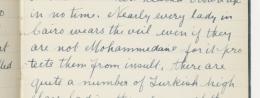 in no time. Nearly every lady in
Cairo wears the veil even if they
are not Mohammedans for it pro
tects them from insult, there are
quite a number of Turkish high